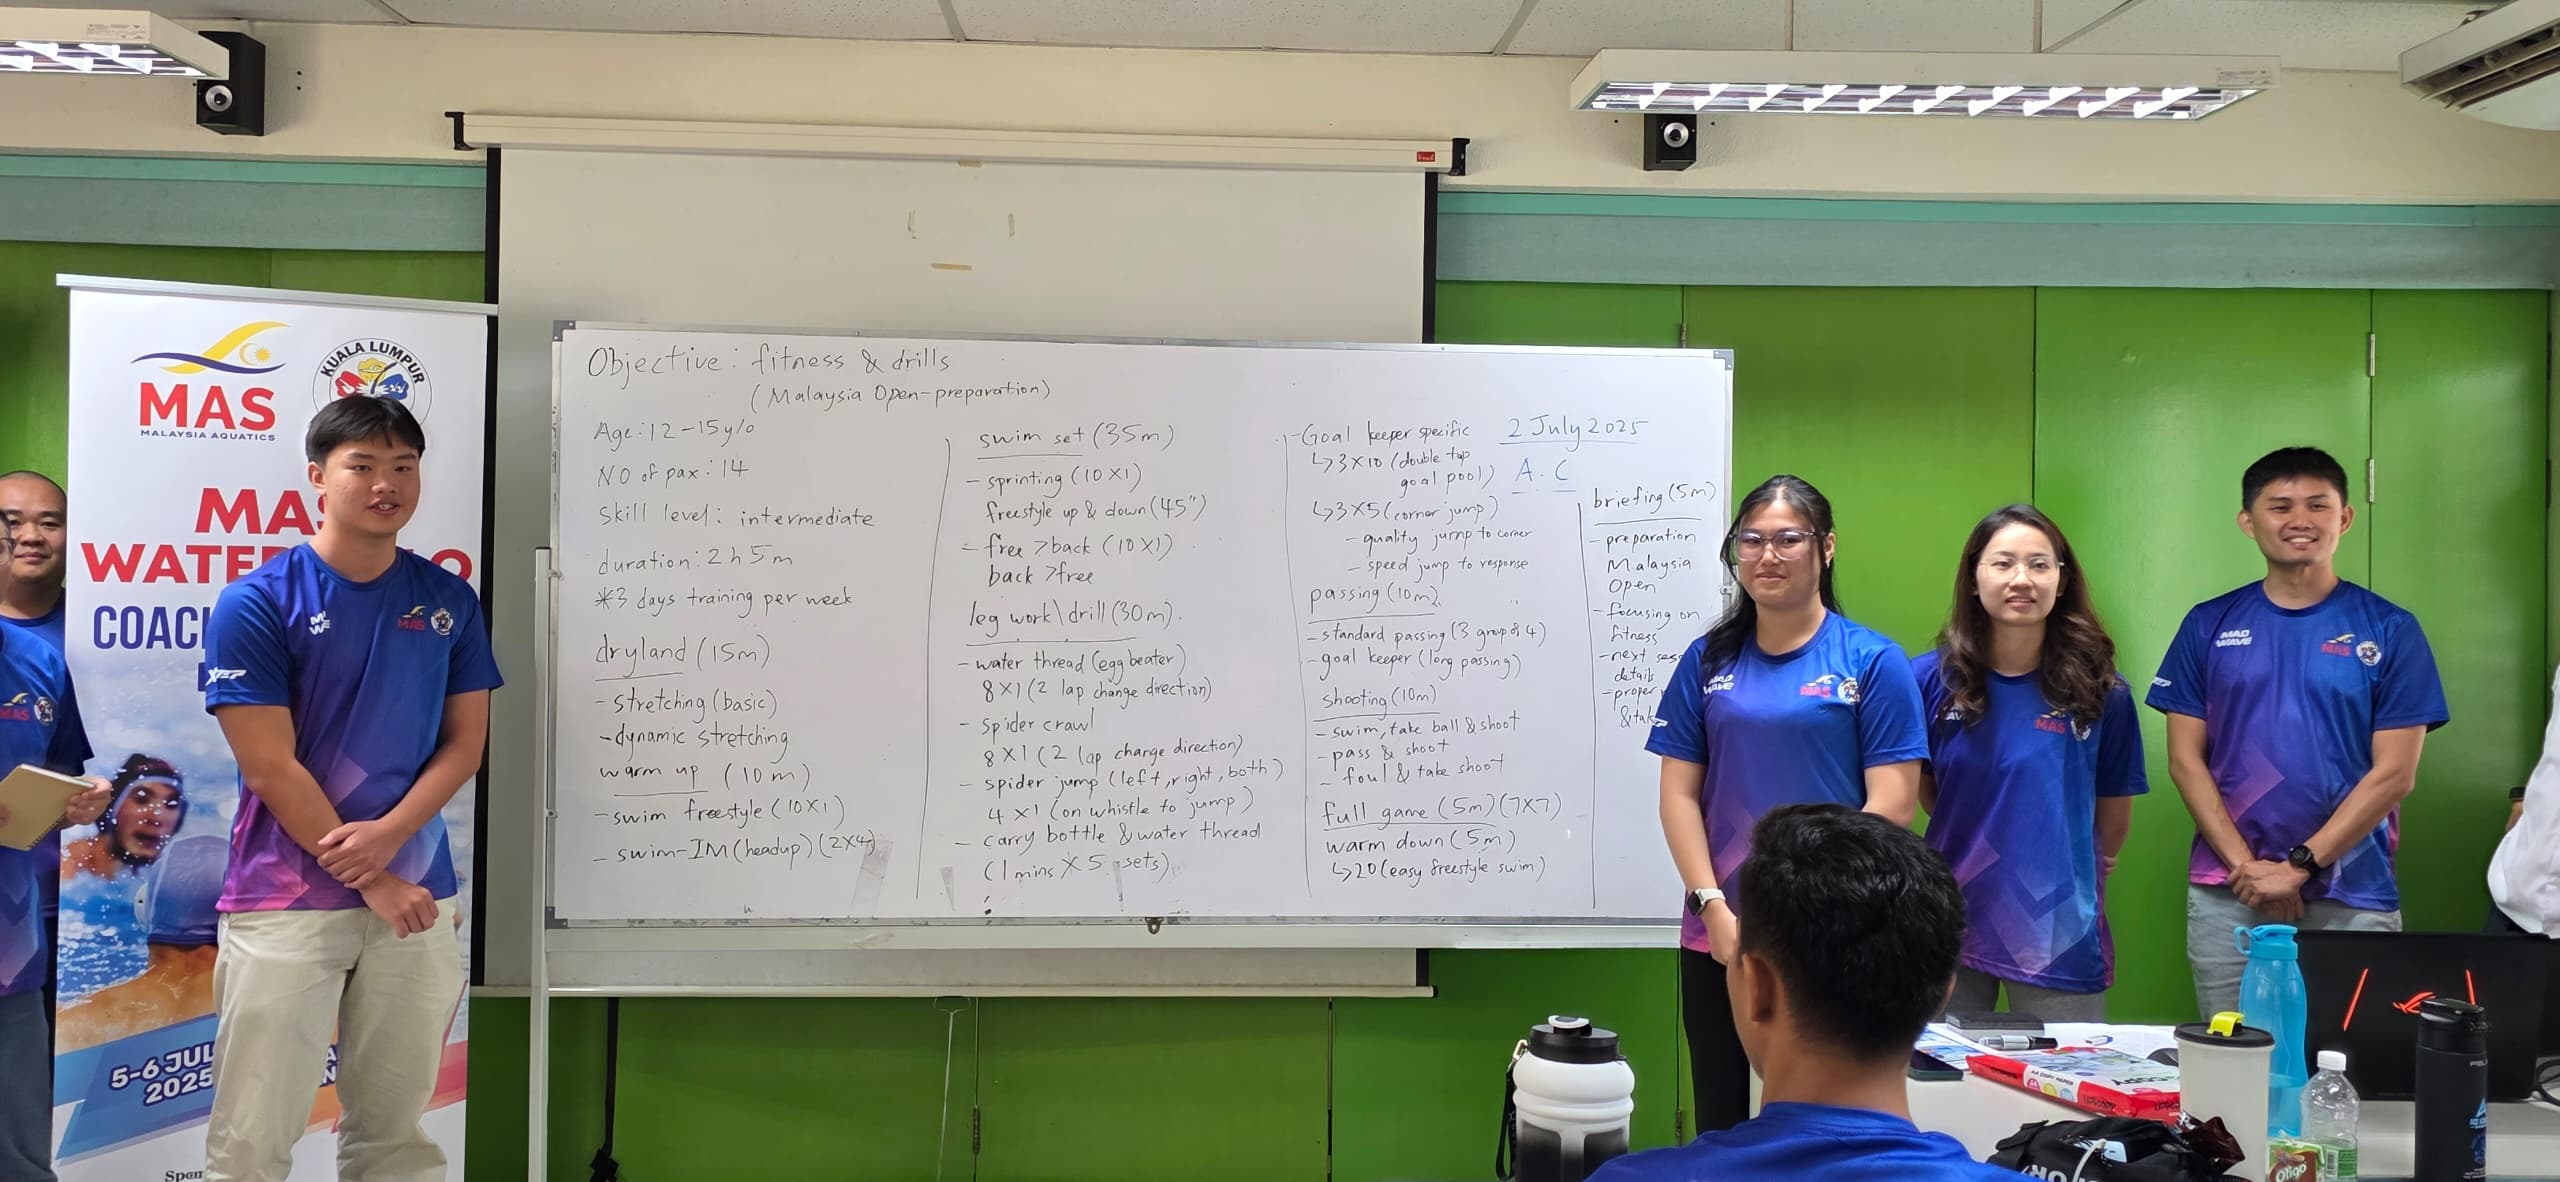 MAS
MALAYSIA AQUATICS
KUALA LUMPUR
MAS
COACH
5-6 JUL
2025
Objective: fitness & drills
(Malaysia Open-preparation)
Age: 12-15 y/o
NO of pax: 14
Skill level: intermediate
duration: 2 h 5 m
*3 days training per week
dryland (15m)
- stretching (basic)
- dynamic stretching
warm up (10 m)
- swim freestyle (10X1)
- swim-IM (headup) (2X4)
swim set (35m)
- sprinting (10X1)
freestyle up & down (45")
- free > back (10X1)
back > free
leg work\drill (30m).
- water thread (eggbeater)
8X1 (2 lap change direction)
- spider crawl
8X1 (2 lap change direction)
- spider jump (left, right, both)
4 X1 (on whistle to jump)
- carry bottle & water thread
(1 mins X 5 sets)
- Goal keeper specific
↳ 3X10 (double tap
goal pool)
↳ 3X5 (corner jump)
- quality jump to corner
- speed jump to response
passing (10m)
- standard passing (3 group of 4)
- goal keeper (long passing)
shooting (10m)
- swim, take ball & shoot
- pass & shoot
- foul & take shoot
full game (5m) (7X7)
warm down (5m)
↳ 20 (easy freestyle swim)
2 July 2025
A. C
briefing (5m)
- preparation
Malaysia
Open
- focusing on
fitness
- next
details
- proper
&
XTEP
MAS
MAS
MAD
WAVE
MAS
MAS
MAD
WAVE
MAS
A4 COPY PAPER
Oligo